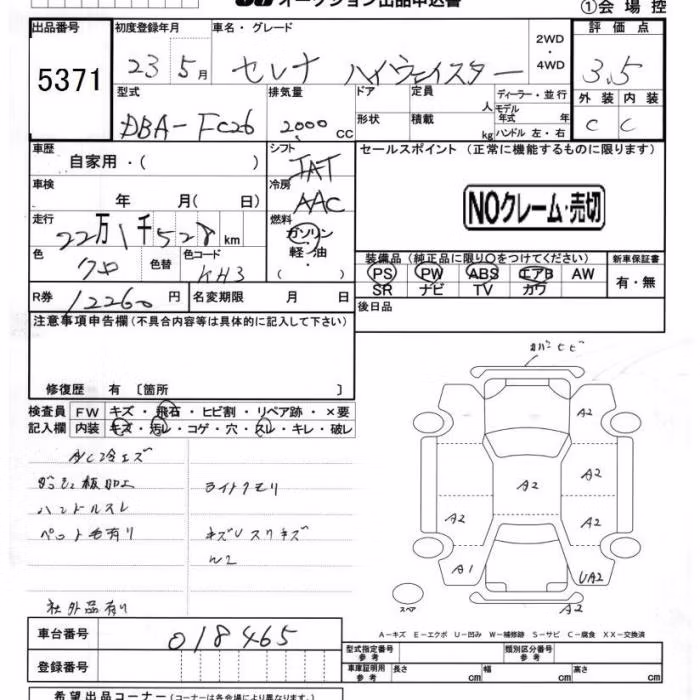 オークション出品申込書
①会場控
出品番号 初度登録年月 車名・グレード 評価点
5371 23 5月 セレナ ハイウェイスター 2WD・4WD 3.5
型式 排気量 ドア 定員 ディーラー・並行 外装 内装
DBA-FC26 2000 CC 形状 積載 人 kg モデル年式 年 ハンドル 左・右 C C
車歴 自家用・( ) シフト セールスポイント (正常に機能するものに限ります)
IAT
車検 年 月( 日) 冷房 AAC
NOクレーム・売切
走行 22万1千528km 燃料 ガソリン
軽・油
( )
色 クロ 色替 色コード KH3
装備品 (純正品に限り○をつけてください) 新車保証書
PS PW ABS エアB AW 有・無
SR ナビ TV カワ
R券 12260円 名変期限 月 日
後日品
注意事項申告欄(不具合内容等は具体的に記入して下さい)
修復歴 有 〔箇所 〕
検査員 FW キズ・飛石・ヒビ割・リペア跡・×要
記入欄 内装 キズ・汚レ・コゲ・穴・スレ・キレ・破レ
ライトクモリ
ハンドルスレ
ペット毛有り キズUスリキズ
W2
社外品有り
A2
A2 A2
A2 A2
A1 UA2
A2
スペア
A-キズ E-エクボ U-凹み W-補修跡 S-サビ C-腐食 XX-交換済
車台番号 018465
型式指定番号 参考 類別区分番号 参考
登録番号 車庫証明用 参考 長さ cm 幅 cm 高さ cm
希望出品コーナー(コーナーは各会場により異なります。)